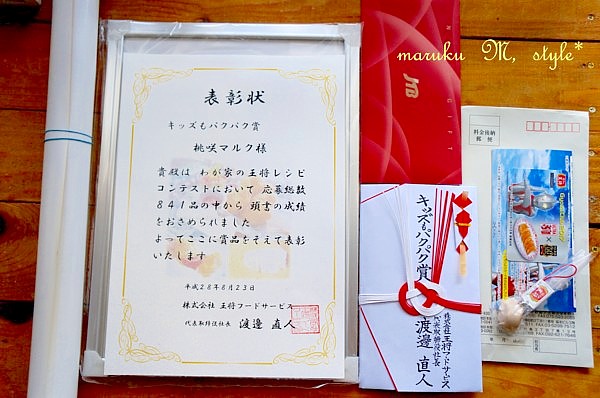 maruku M, style*
表彰状
キッズもパクパク賞
桃咲マルク様
貴殿は わが家の王将レシピ
コンテストにおいて 応募総数
841品の中から 頭書の成績
をおさめられました
よってここに賞品をそえて表彰
いたします
平成28年8月23日
株式会社 王将フードサービス
代表取締役社長 渡邊 直人
GIFT
キッズもパクパク賞
株式会社王将フードサービス
代表取締役社長
渡邊 直人
料金後納
郵便